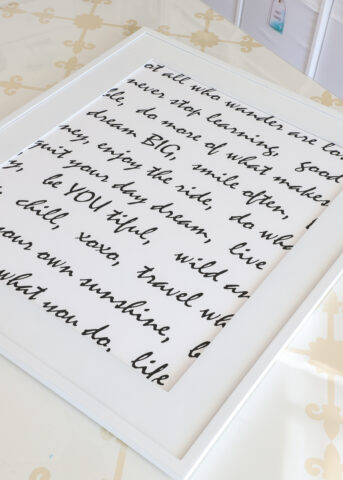 ot all who wander are lo
never stop learning, good
lle, do more of what makes
dream BIG, smile often,
ney, enjoy the ride, do wha
quit your day dream, live
be YOU tiful, wild an
chill, xoxo, travel wh
your own sunshine, b
what you do, life